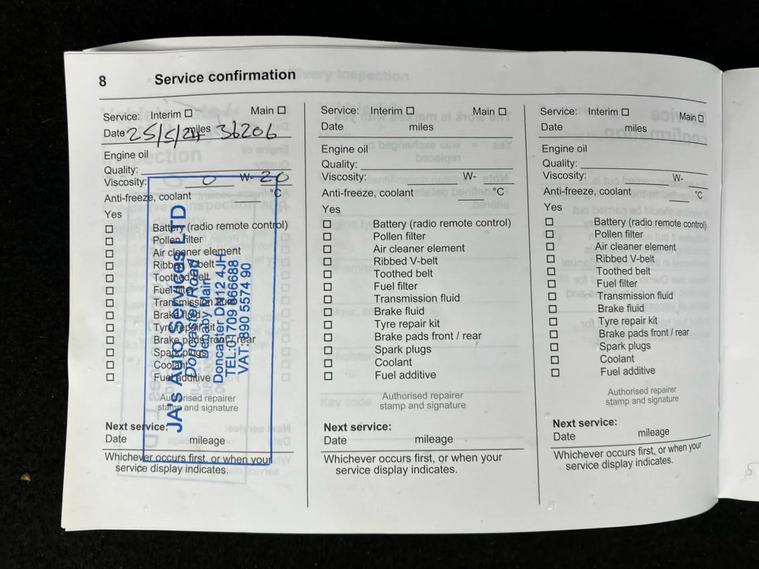 8 Service confirmation
Service: Interim ☐ Main ☐
Date 25/5/24 miles 36206
Engine oil
Quality:
Viscosity: 0 W- 20
Anti-freeze, coolant °C
Yes
☐ Battery (radio remote control)
☐ Pollen filter
☐ Air cleaner element
☐ Ribbed V-belt
☐ Toothed belt
☐ Fuel filter
☐ Transmission fluid
☐ Brake fluid
☐ Tyre repair kit
☐ Brake pads front / rear
☐ Spark plugs
☐ Coolant
☐ Fuel additive
Authorised repairer
stamp and signature
Next service:
Date mileage
Whichever occurs first, or when your
service display indicates.
JAs Auto Services LTD
Doncaster Road
Denaby Main
Doncaster DN12 4JH
TEL: 01709 866688
VAT: 890 5574 90
Service: Interim ☐ Main ☐
Date miles
Engine oil
Quality:
Viscosity: W-
Anti-freeze, coolant °C
Yes
☐ Battery (radio remote control)
☐ Pollen filter
☐ Air cleaner element
☐ Ribbed V-belt
☐ Toothed belt
☐ Fuel filter
☐ Transmission fluid
☐ Brake fluid
☐ Tyre repair kit
☐ Brake pads front / rear
☐ Spark plugs
☐ Coolant
☐ Fuel additive
Authorised repairer
stamp and signature
Next service:
Date mileage
Whichever occurs first, or when your
service display indicates.
Service: Interim ☐ Main ☐
Date miles
Engine oil
Quality:
Viscosity: W-
Anti-freeze, coolant °C
Yes
☐ Battery (radio remote control)
☐ Pollen filter
☐ Air cleaner element
☐ Ribbed V-belt
☐ Toothed belt
☐ Fuel filter
☐ Transmission fluid
☐ Brake fluid
☐ Tyre repair kit
☐ Brake pads front / rear
☐ Spark plugs
☐ Coolant
☐ Fuel additive
Authorised repairer
stamp and signature
Next service:
Date mileage
Whichever occurs first, or when your
service display indicates.